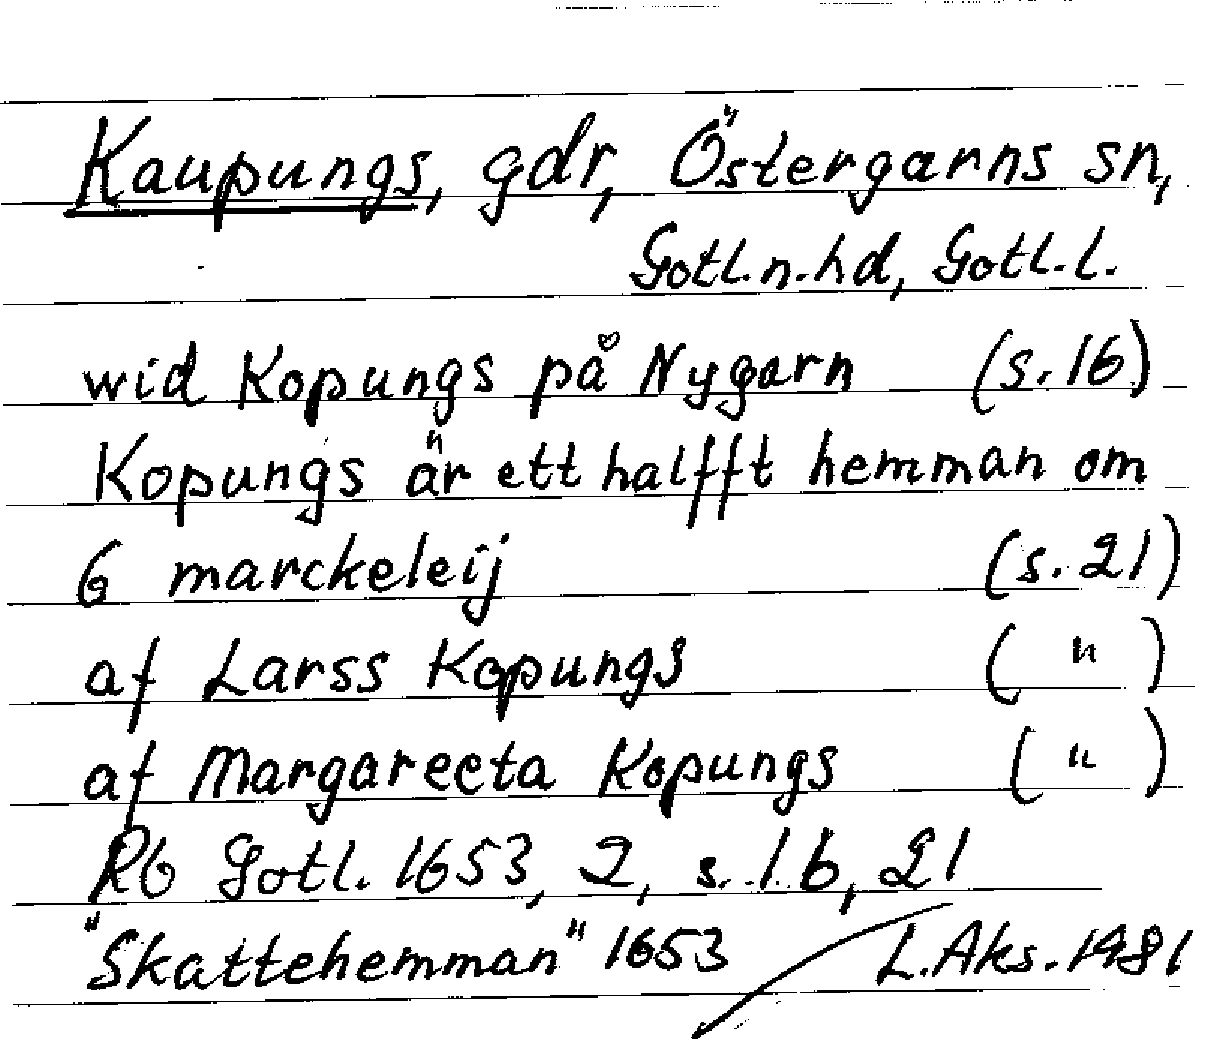 Kaupungs, gdr, Östergarns sn,
Gotl. n. hd, Gotl. l.
wid Kopungs på Nygarn (s. 16)
Kopungs är ett halfft hemman om
6 marckeleij (s. 21)
af Larss Kopungs ( " )
af Margareeta Kopungs ( " )
Rb Gotl. 1653, 2, s. 16, 21
"Skattehemman" 1653 L. Aks. 1981